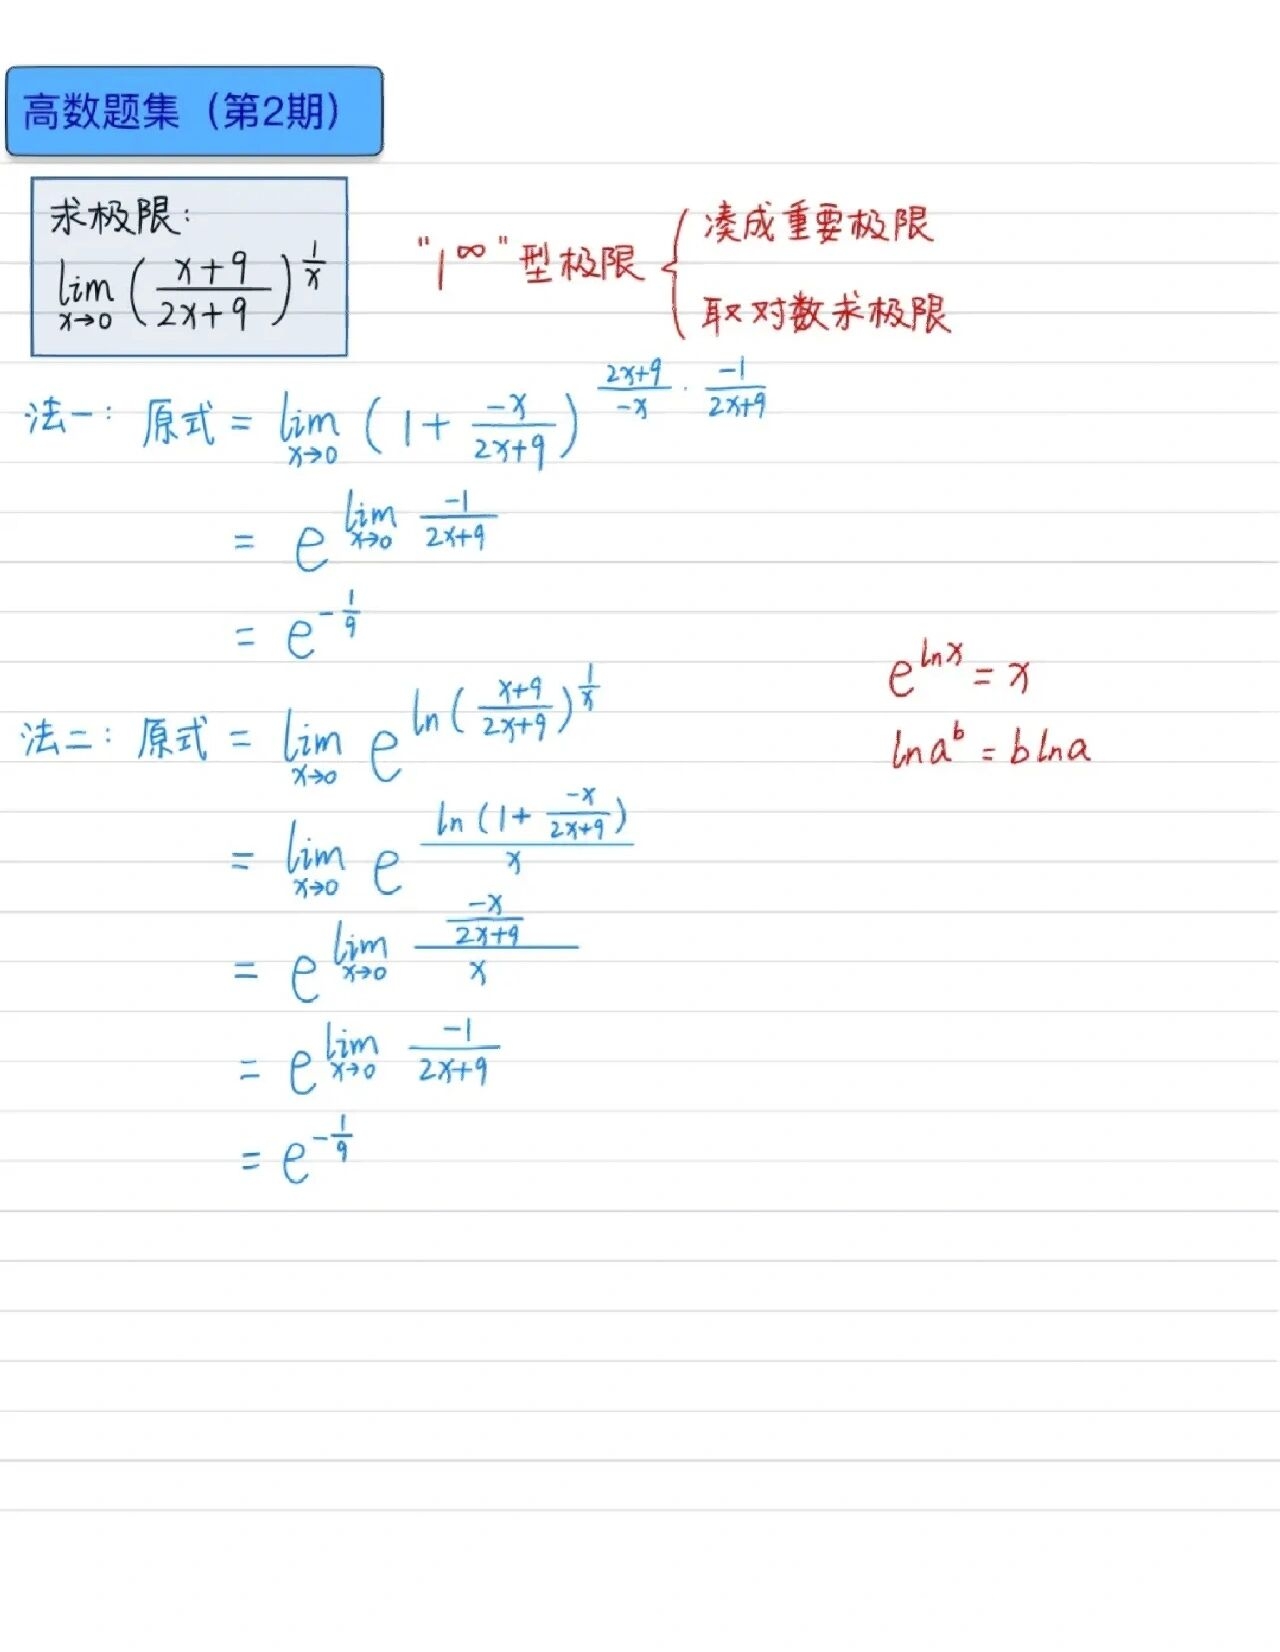 高数题集（第2期）
求极限：
lim_{x→0} (\frac{x+9}{2x+9})^{\frac{1}{x}}
“1^∞”型极限 { 凑成重要极限
取对数求极限
法一：原式 = lim_{x→0} (1+\frac{-x}{2x+9})^{\frac{2x+9}{-x}·\frac{-1}{2x+9}}
= e^{lim_{x→0} \frac{-1}{2x+9}}
= e^{-\frac{1}{9}}
e^{lnx} = x
法二：原式 = lim_{x→0} e^{ln(\frac{x+9}{2x+9})^{\frac{1}{x}}}
lna^b = blna
= lim_{x→0} e^{\frac{ln(1+\frac{-x}{2x+9})}{x}}
= e^{lim_{x→0} \frac{\frac{-x}{2x+9}}{x}}
= e^{lim_{x→0} \frac{-1}{2x+9}}
= e^{-\frac{1}{9}}